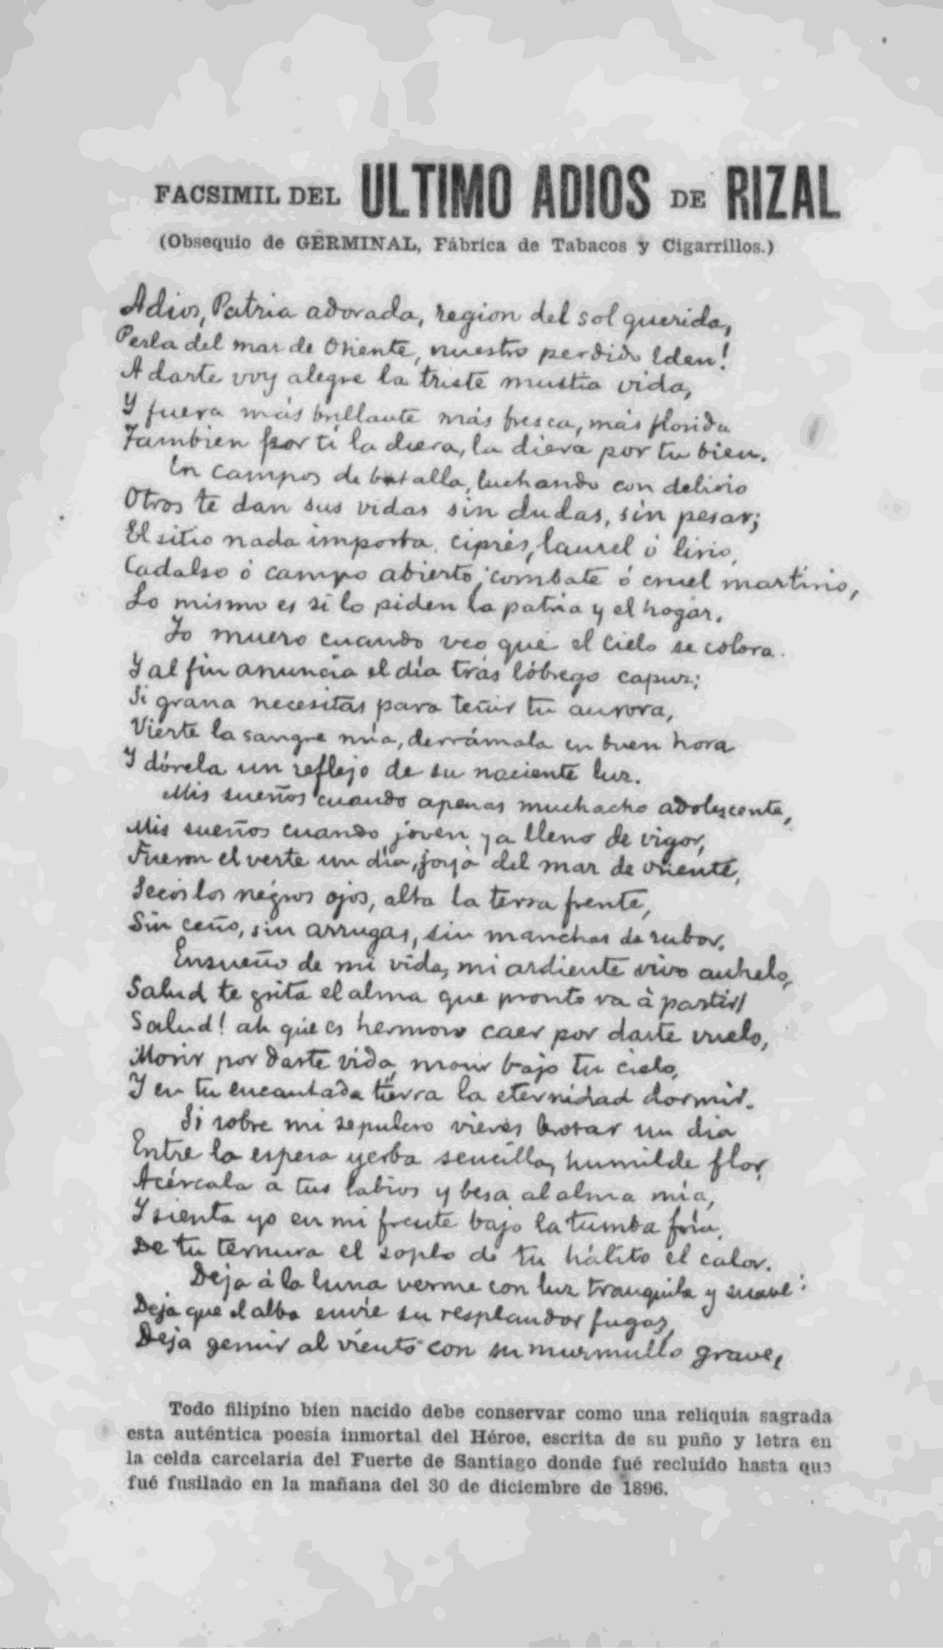 FACSIMIL DEL ULTIMO ADIOS DE RIZAL
(Obsequio de GERMINAL, Fábrica de Tabacos y Cigarrillos.)
Adios, Patria adorada, region del sol querida,
Perla del mar de Oriente, nuestro perdido Eden!
A darte voy alegre la triste mustia vida,
Y fuera más brillante más fresca, más florida
Tambien por tí la diera, la diera por tu bien.
En campos de batalla, luchando con delirio
Otros te dan sus vidas sin dudas, sin pesar;
El sitio nada importa, ciprés, laurel ó lirio,
Cadalso ó campo abierto, combate ó cruel martirio,
Lo mismo es si lo piden la patria y el hogar.
Yo muero cuando veo que el cielo se colora
Y al fin anuncia el día trás lóbrego capuz;
Si grana necesitas para teñir tu aurora,
Vierte la sangre mía, derrámala en buen hora
Y dórela un reflejo de su naciente luz.
Mis sueños cuando apenas muchacho adolescente,
Mis sueños cuando joven ya lleno de vigor,
Fueron el verte un día, joya del mar de oriente,
Secos los negros ojos, alta la tersa frente,
Sin ceño, sin arrugas, sin manchas de rubor.
Ensueño de mi vida, mi ardiente vivo anhelo,
Salud te grita el alma que pronto va á partir!
Salud! ah que es hermoso caer por darte vuelo,
Morir por darte vida, morir bajo tu cielo,
Y en tu encantada tierra la eternidad dormir.
Si sobre mi sepulcro vieres brotar un dia
Entre la espesa yerba sencilla, humilde flor,
Acércala a tus labios y besa al alma mía,
Y sienta yo en mi frente bajo la tumba fría,
De tu ternura el soplo de tu hálito el calor.
Deja á la luna verme con luz tranquila y suave:
Deja que el alba envíe su resplandor fugaz,
Deja gemir al viento con su murmullo grave,
Todo filipino bien nacido debe conservar como una reliquia sagrada
esta auténtica poesia inmortal del Héroe, escrita de su puño y letra en
la celda carcelaria del Fuerte de Santiago donde fué recluído hasta que
fué fusilado en la mañana del 30 de diciembre de 1896.